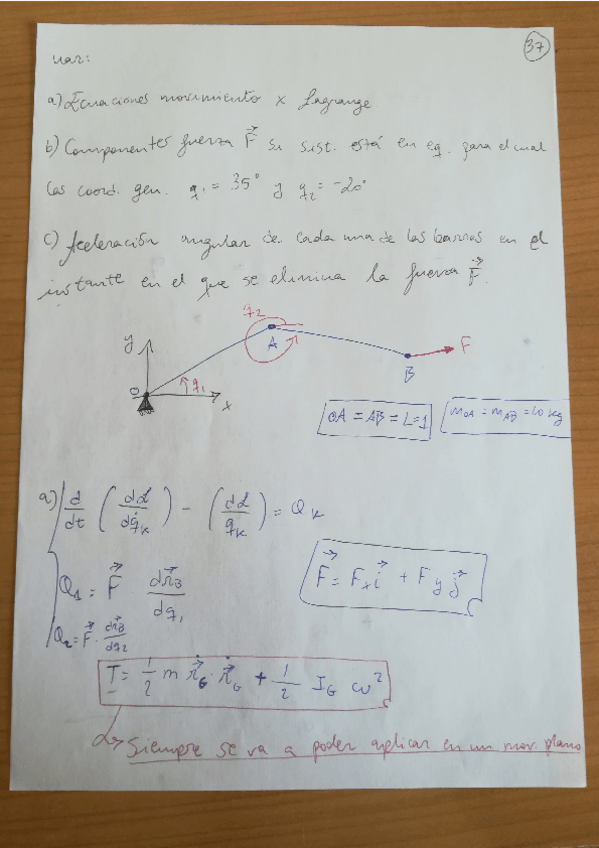 37
uar:
a) Ecuaciones movimiento x Lagrange
b) Componentes fuerza F⃗ si sist. está en eq. para el cual
las coord. gen. q₁ = 35° y q₂ = -20°
c) Aceleración angular de cada una de las barras en el
instante en el que se elimina la fuerza F⃗.
y
q₂
A
F
B
O
q₁
x
OA = AB = L = 1
m_OA = m_AB = 10 kg
a) d/dt (dL/dq̇_K) - (dL/q_K) = Q_K
Q₁ = F⃗ dr⃗_B/dq₁
F⃗ = F_x i⃗ + F_y j⃗
Q₂ = F⃗ · dr⃗_B/dq₂
T = 1/2 m ṙ⃗_G · ṙ⃗_G + 1/2 I_G ω²
Siempre se va a poder aplicar en un mov. plano